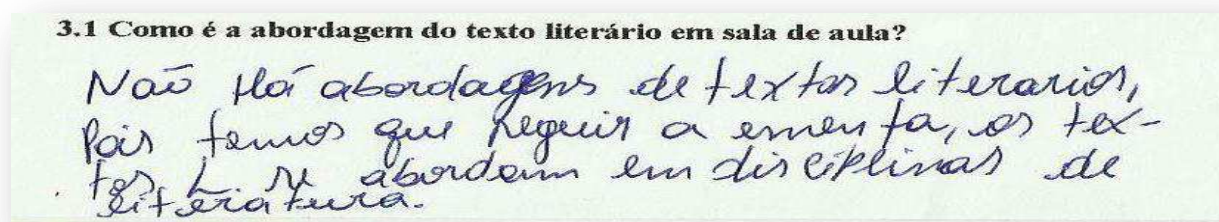 3.1 Como é a abordagem do texto literário em sala de aula?
Não Há abordagens de textos literarios,
Pois temos que seguir a ementa, os tex-
tos L se abordam em disciplinas de
literatura.